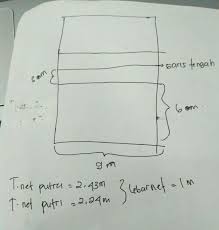 garis tengah
3m
6m
9m
T. net putra = 2.43m
T. net putri = 2.24m
} lebar net = 1m